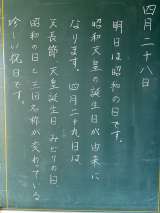 四月二十八日
明日は昭和の日です。
昭和天皇の誕生日が由来に
なります。四月二十九日は
天長節、天皇誕生日、みどりの日、
昭和の日と三回名称が変わっている
珍しい祝日です。